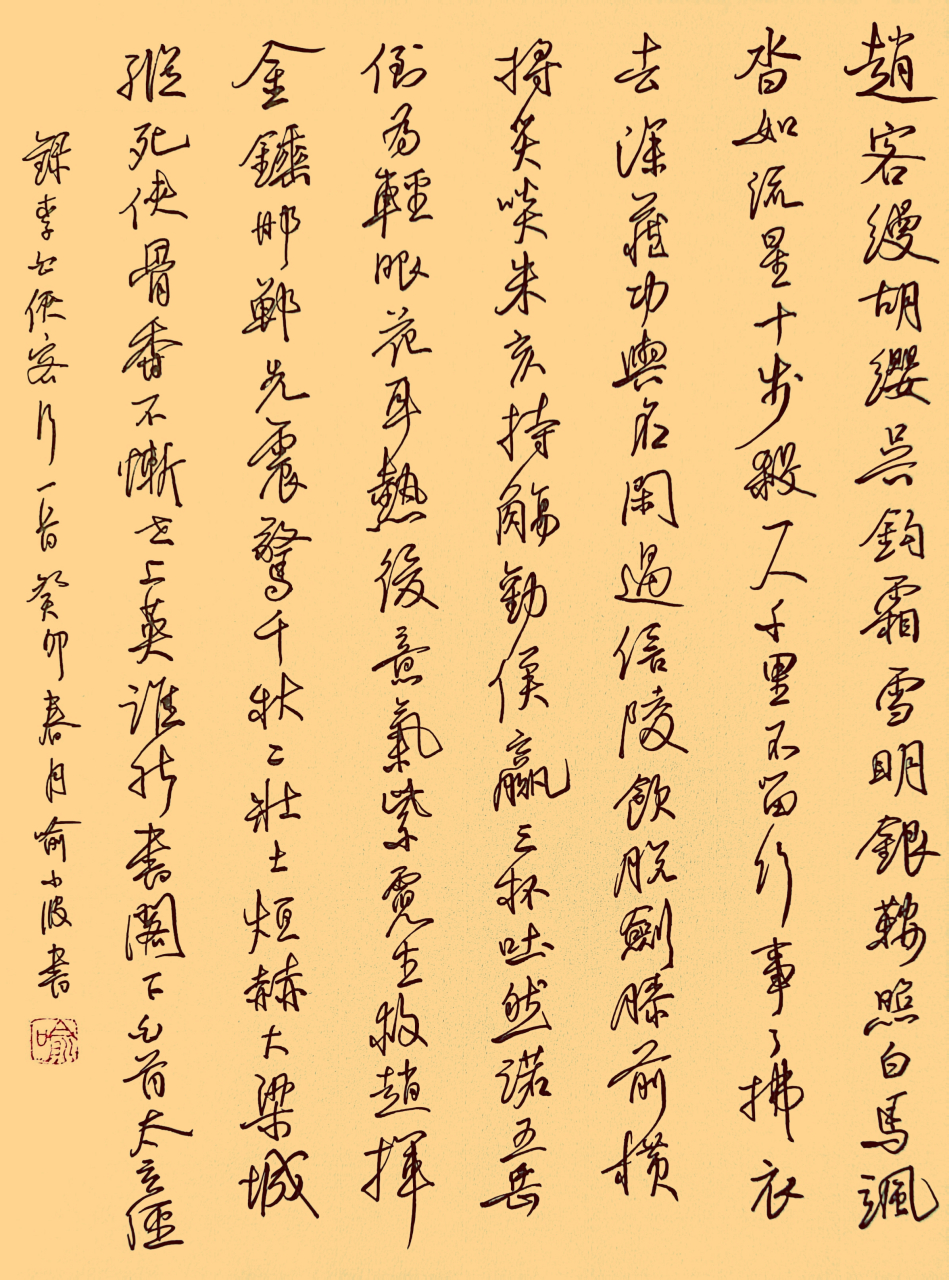 趙客縵胡纓吴鈎霜雪明銀鞍照白馬颯
沓如流星十步殺一人千里不留行事了拂衣
去深藏功與名閑過信陵飲脱劍膝前横
將炙啖朱亥持觴勸侯嬴三杯吐然諾五岳
倒為輕眼花耳熱後意氣紫霓生救趙揮
金鎚邯鄲先震驚千秋二壯士烜赫大梁城
縱死俠骨香不慚世上英誰能書閣下白首太玄經
錄李白俠客行一首癸卯春月喻小波書
喻